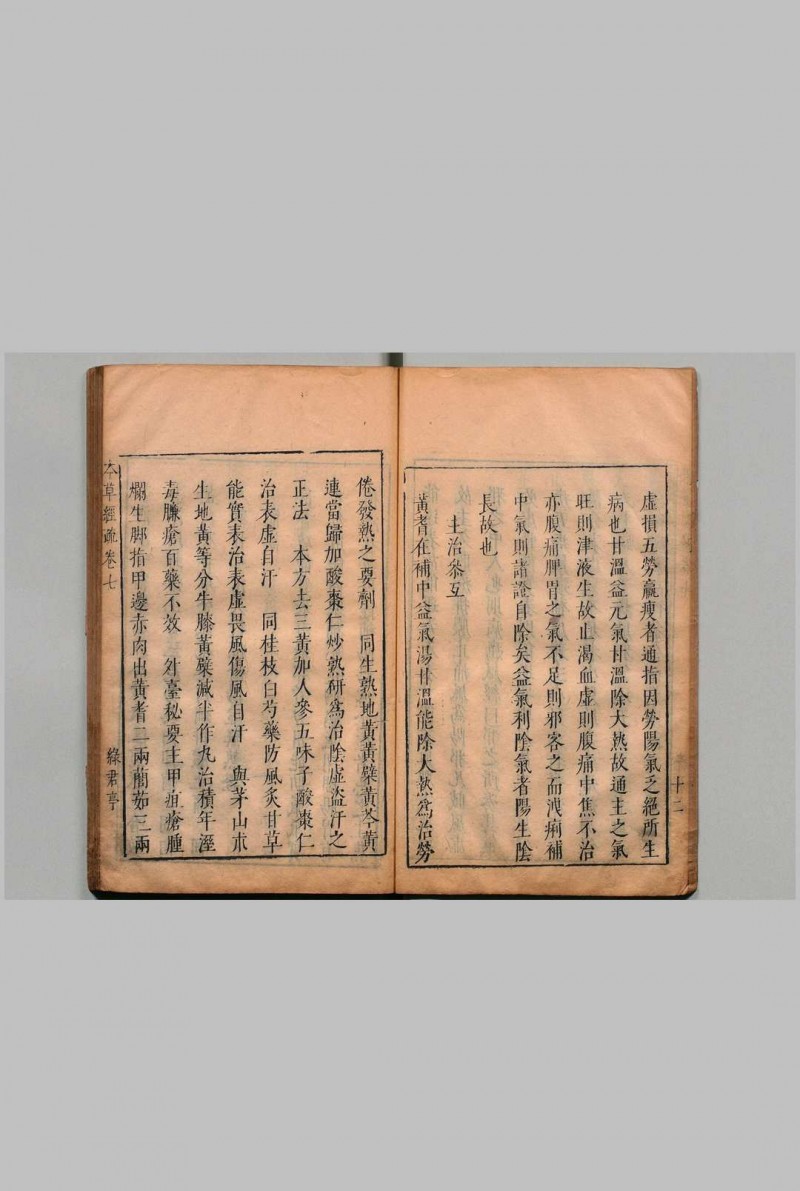 虛損五勞羸瘦者通指因勞陽氣乏絕所生
病也甘溫益元氣甘溫除大熱故通主之氣
旺則津液生故止渴血虛則腹痛中焦不治
亦腹痛脾胃之氣不足則邪客之而洩痢補
中氣則諸證自除矣益氣利陰氣者陽生陰
長故也
主治叅互
黃耆在補中益氣湯甘溫能除大熱爲治勞
十二
倦發熱之要劑　同生熟地黃黃蘗黃芩黃
連當歸加酸棗仁炒熟研爲治陰虛盜汗之
正法　本方去三黃加人參五味子酸棗仁
治表虛自汗　同桂枝白芍藥防風炙甘草
能實表治表虛畏風傷風自汗　與茅山朮
生地黃等分牛膝黃蘗減半作丸治積年溼
毒臁瘡百藥不效　外臺秘要主甲疽瘡腫
爛生脚指甲邊赤肉出黃耆二兩䕡茹三兩
本草經疏卷七
綠君亭